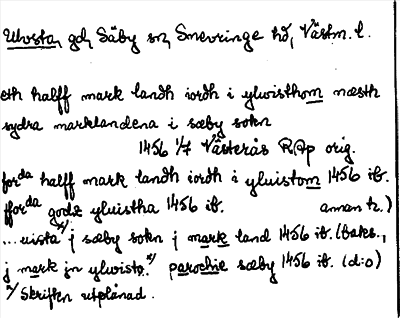 Ulvsta, gd, Säby sn, Snevringe hd, Västm. l.
eth halff mark landh iordh i ylwisthom næsth
sydra marklandena i sæby sokn
1456 1/7 Västerås RAp orig.
forda halff mark landh iordh i yluistom 1456 ib.
fforda godz yluistha 1456 ib. annan h.)
...uista x) j sæby sokn j mark land 1456 ib. (baks.,
j mark jn ylwista x) parochie sæby 1456 ib. (d:o)
x) Skriften utplånad.